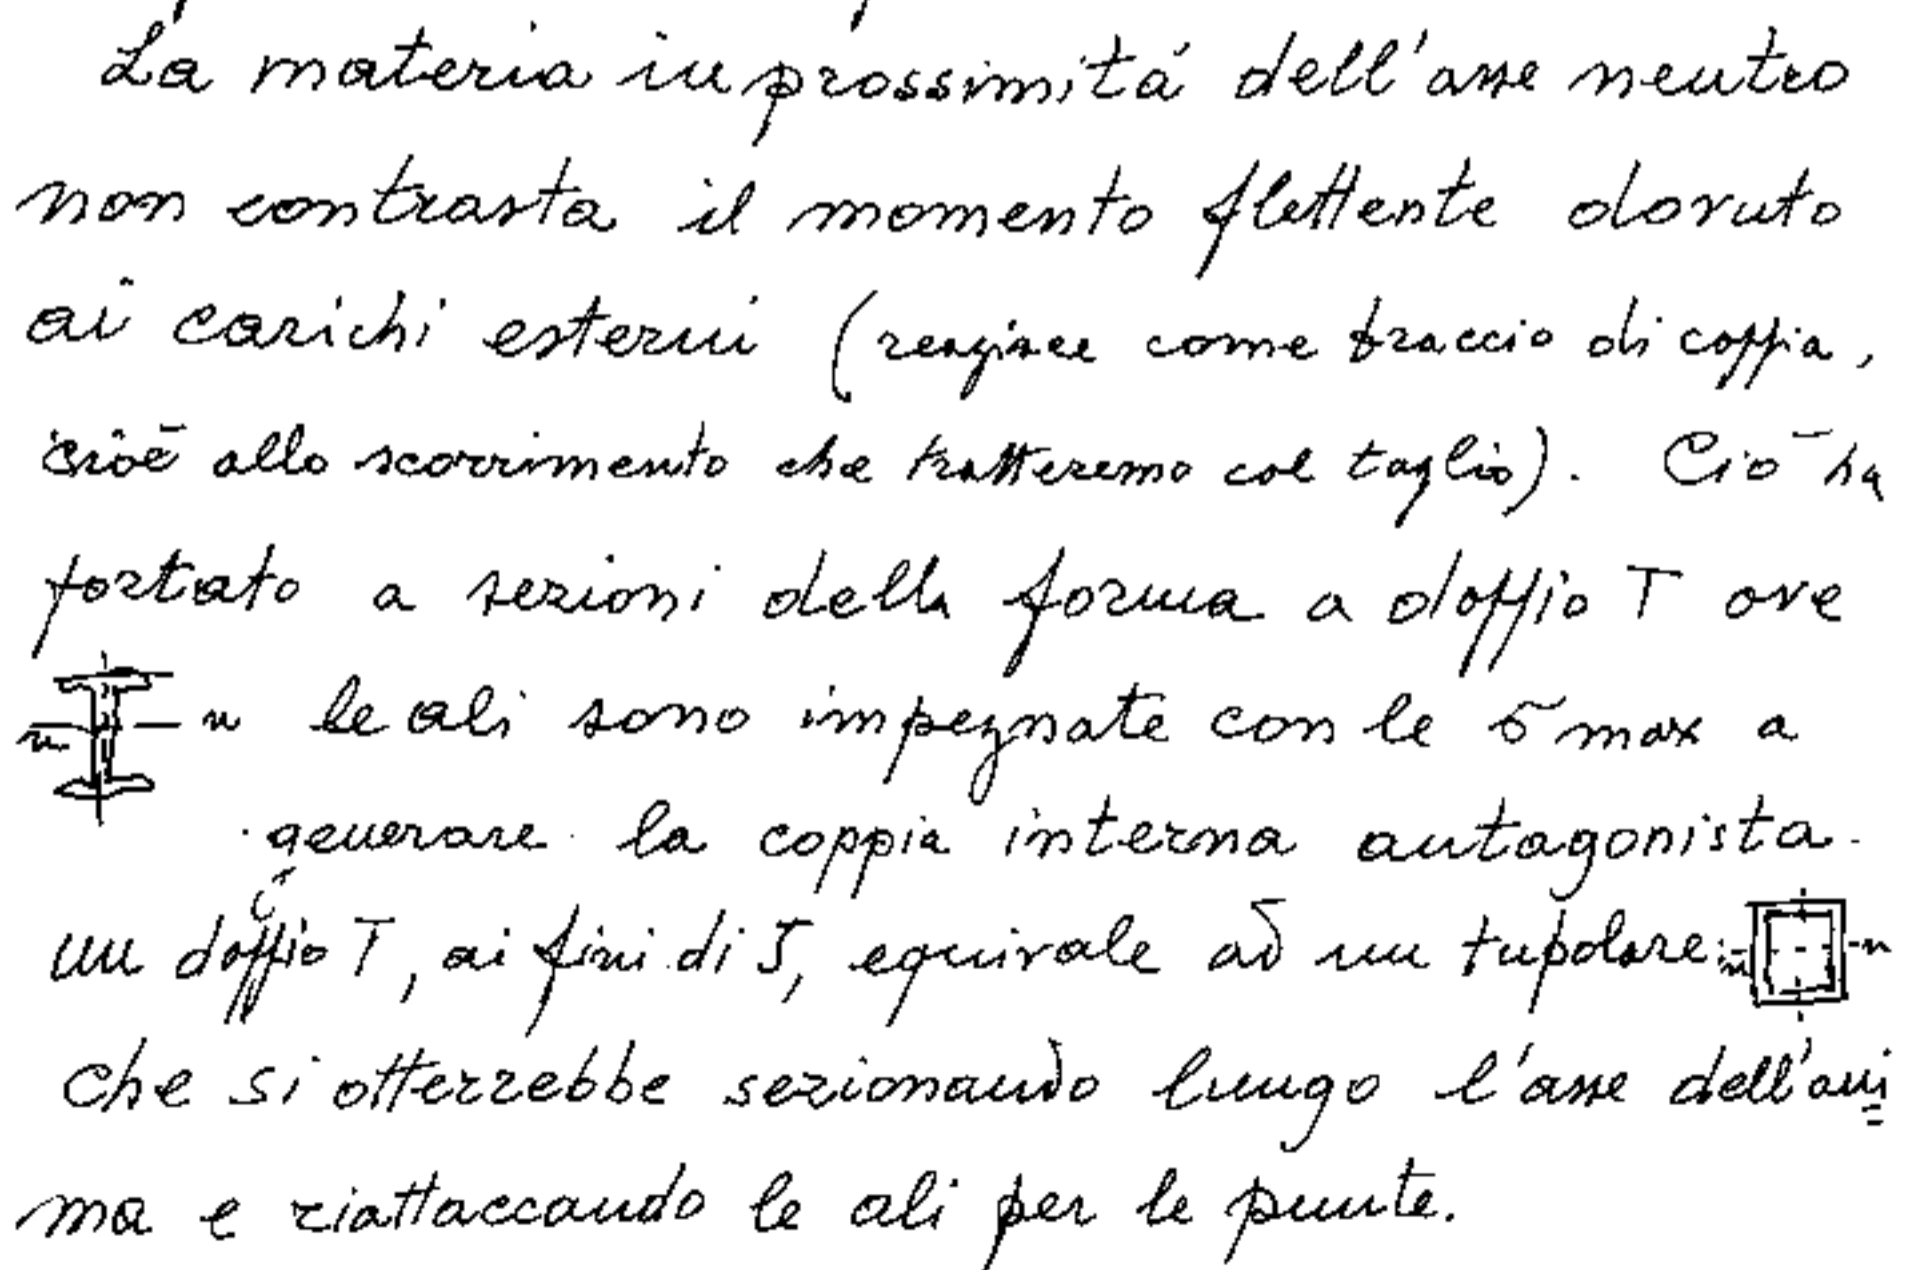 La materia in prossimità dell'asse neutro
non contrasta il momento flettente dovuto
ai carichi esterni (reagisce come braccio di coppia,
cioè allo scorrimento che tratteremo col taglio). Ciò ha
portato a sezioni della forma a doppio T ove
n n le ali sono impegnate con le σ max a
generare la coppia interna antagonista.
un doppio T, ai fini di J, equivale ad un tubolare: n n
che si otterrebbe sezionando lungo l'asse dell'ani
ma e riattaccando le ali per le punte.